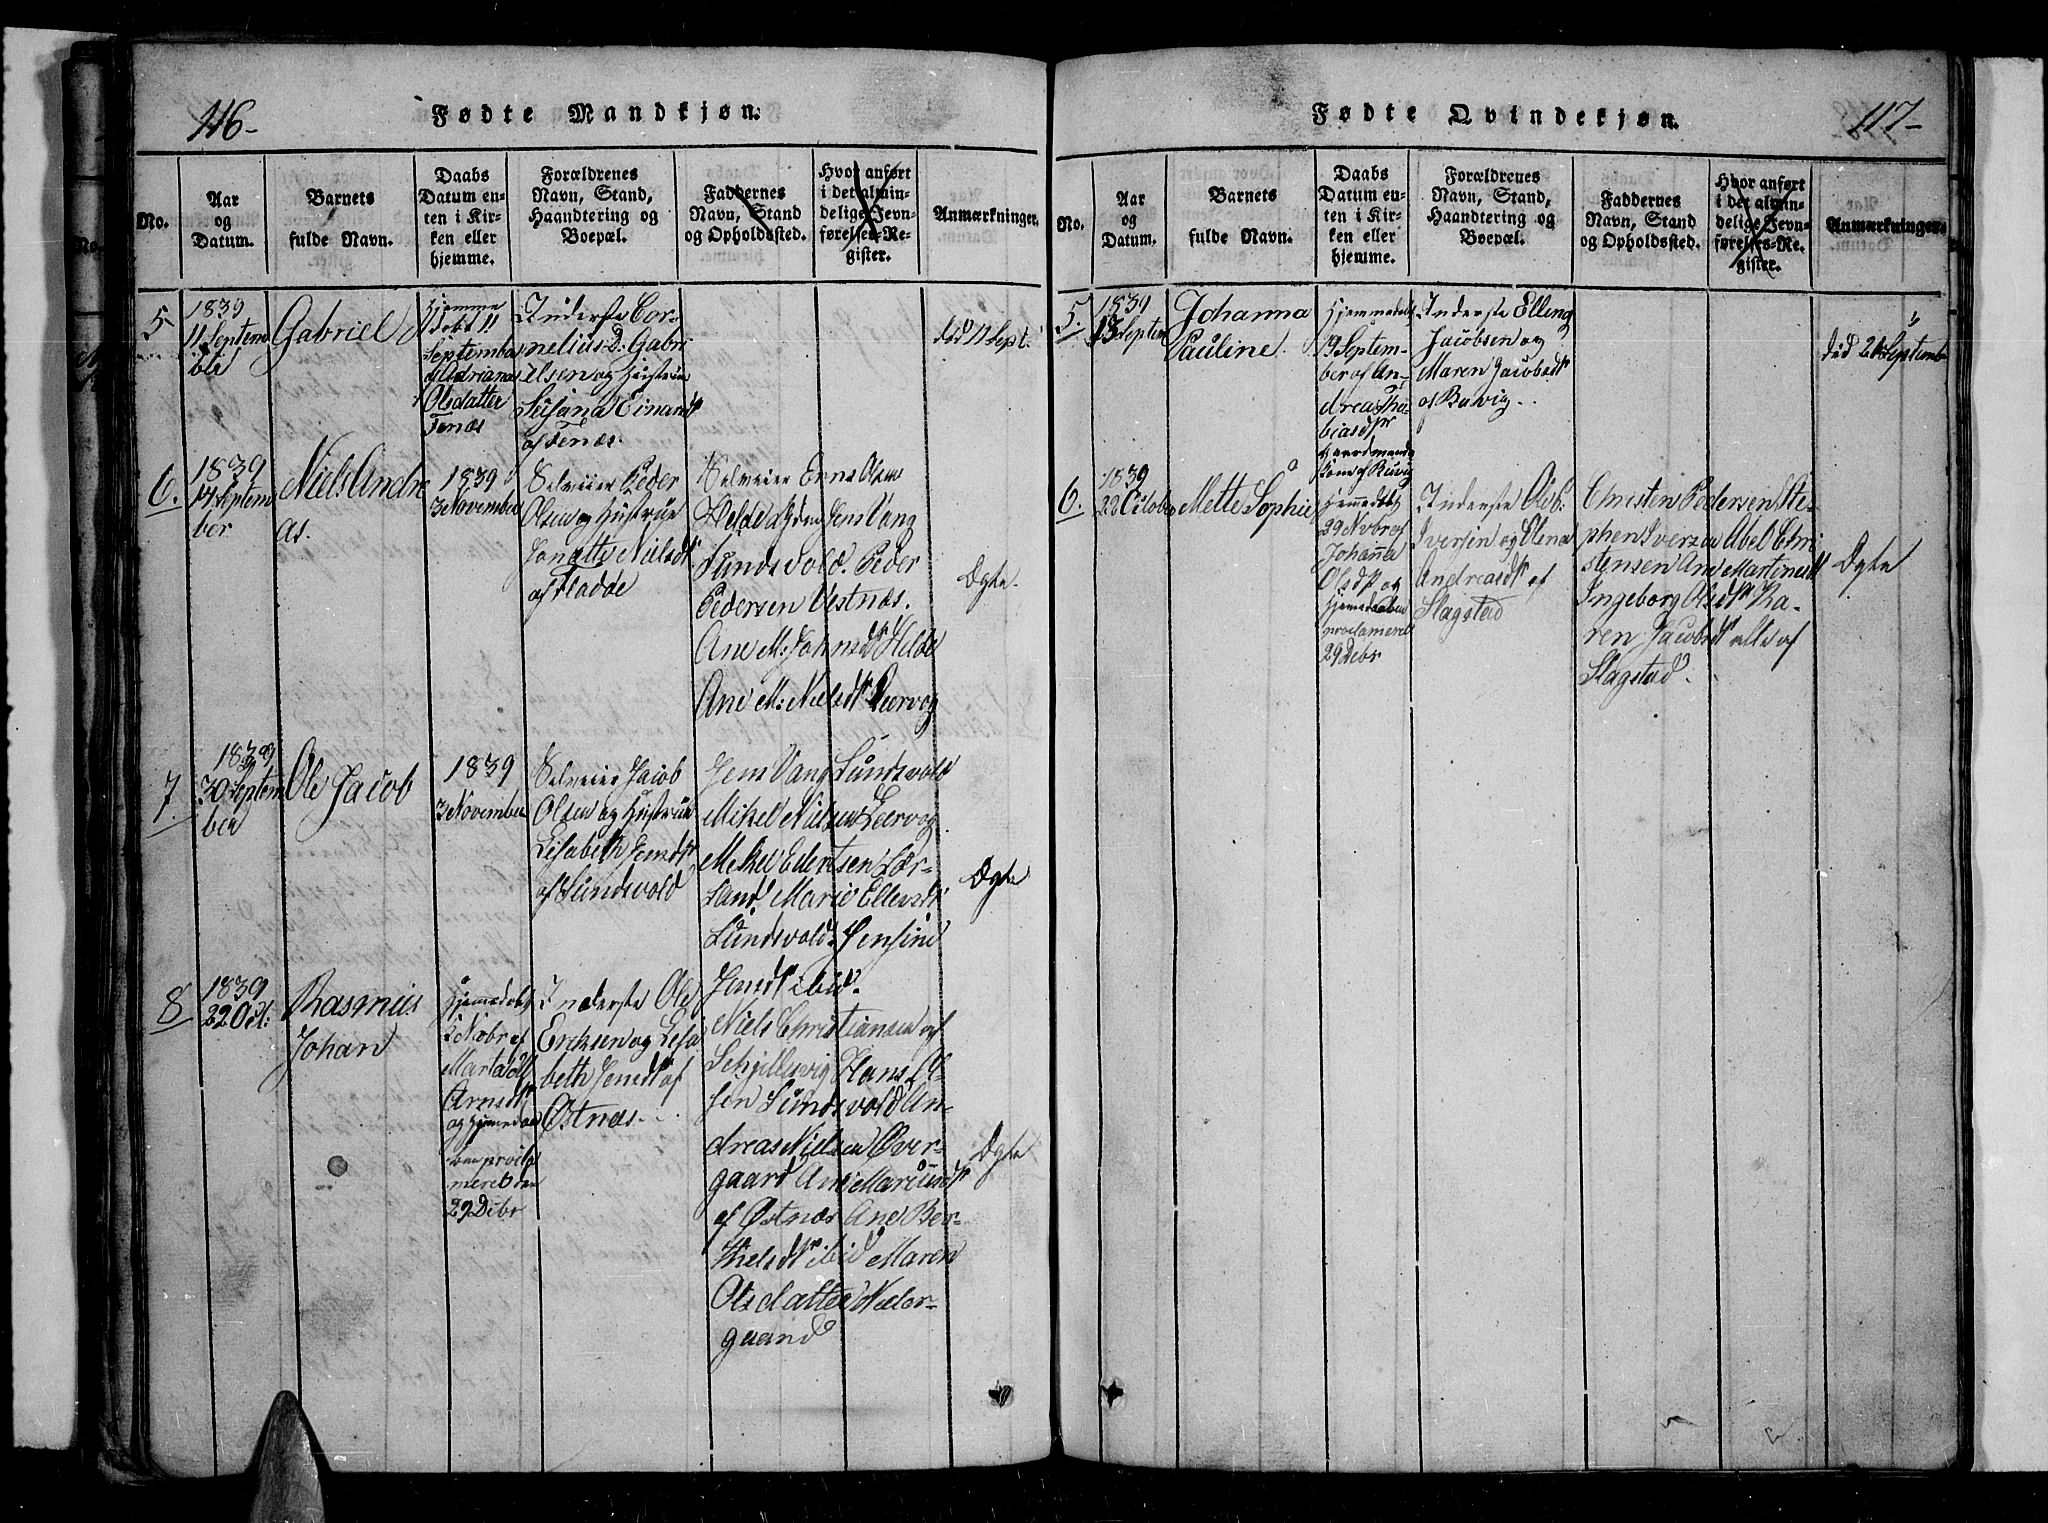 116-
Fødte Mandkjøn.
No.
Aar
og
Datum.
Barnets
fulde Navn.
Daabs
Datum en-
ten i Kir-
ken eller
hjemme.
Forældrenes
Navn, Stand,
Haandtering og
Boepæl.
Faddernes
Navn, Stand
og Opholdssted.
Hvor anført
i det almin-
delige Jevn-
førelses-Re-
gister.
Anmærkninger.
5
1839
11 Septem
ber
Gabriel
Hjemme
døbt 11
September
af Adriana
Olsdatter
Tenæs
Inderste Cor-
nelius D: Gabri
elsen og Hustrue
Susana Einardt
af Tenæs.
død 11 Sept.
6.
1839
14 Septem
ber
Niels Andre
as.
1839
3 November
Selveier Peder
Olsen og Hustrue
Janette Nielsdt
af Fladde
Selveier Enne Olsen
Helde Jens Vang
Sundsvold. Peder
Pedersen Vestnæs.
Ane M: Johnsdt Helde
Ane M: Nielsdt Leervog
Ægte.
7.
1839
30 Septem
ber
Ole Jacob
1839
3 November
Selveier Jacob
Olsen og Hustrue
Lisabeth Jensdt
af Sundsvold
Jens Vang Sundsvold
Mikel Nielsen Leervog
Mikel Edertsen Lær-
land. Marie Ellensdt
Sundsvold. Jensine
Jensdt ibid.
Ægte
8
1839
22 Oct:
Rasmus
Johan
Hjemedøbt
2 Nvbr af
Marta
Arnsdt
og hjemedaa
ben procla
meret den
29 Debr
Inderste Ole
Ericksen og Lisa
beth Jensdt af
Østnæs.
Niels Christiansen af
Selsillesvig Hans Ol-
sen Sundsvold An-
dreas Nielsen Over-
gaard Ane Mariusdt
af Østnæs Ane Ber-
thelsdt ibid Maren
Olsdatter Neder-
gaard
Ægte
Fødte Qvindekjøn.
117-
No.
Aar
og
Datum.
Barnets
fulde Navn.
Daabs
Datum en-
ten i Kir-
ken eller
hjemme.
Forældrenes
Navn, Stand,
Haandtering og
Boepæl.
Faddernes
Navn, Stand
og Opholdssted.
Hvor anført
i det almin-
delige Jevn-
førelses-Re-
gister.
Anmærkninger.
5.
1839
13 Septem
Johanna
Pauline.
Hjemmedøbt
19 Septem-
ber af An-
drea Tho-
biasdtr
Gaardmands
kone af Buvig
Inderste Elling
Jacobsen og
Maren Jacobsdt
af Buvig.
død 21 Septemb
6.
1839
22 Octobe
Mette Sophie
Hjemedøbt
29 Nvbr af
Johanna
Olsdt og
hjemedaaben
proclameret
29 Debr
Inderste Ole B:
Iversen og Elena
Andreasdt af
Slagstad
Christen Pedersen Ste-
phen Iversen Abel Chri
stensen Ane Martinesdt
Ingeborg Olsdt Ka-
ren Jacobsdt alle af
Slagstad.
Ægte